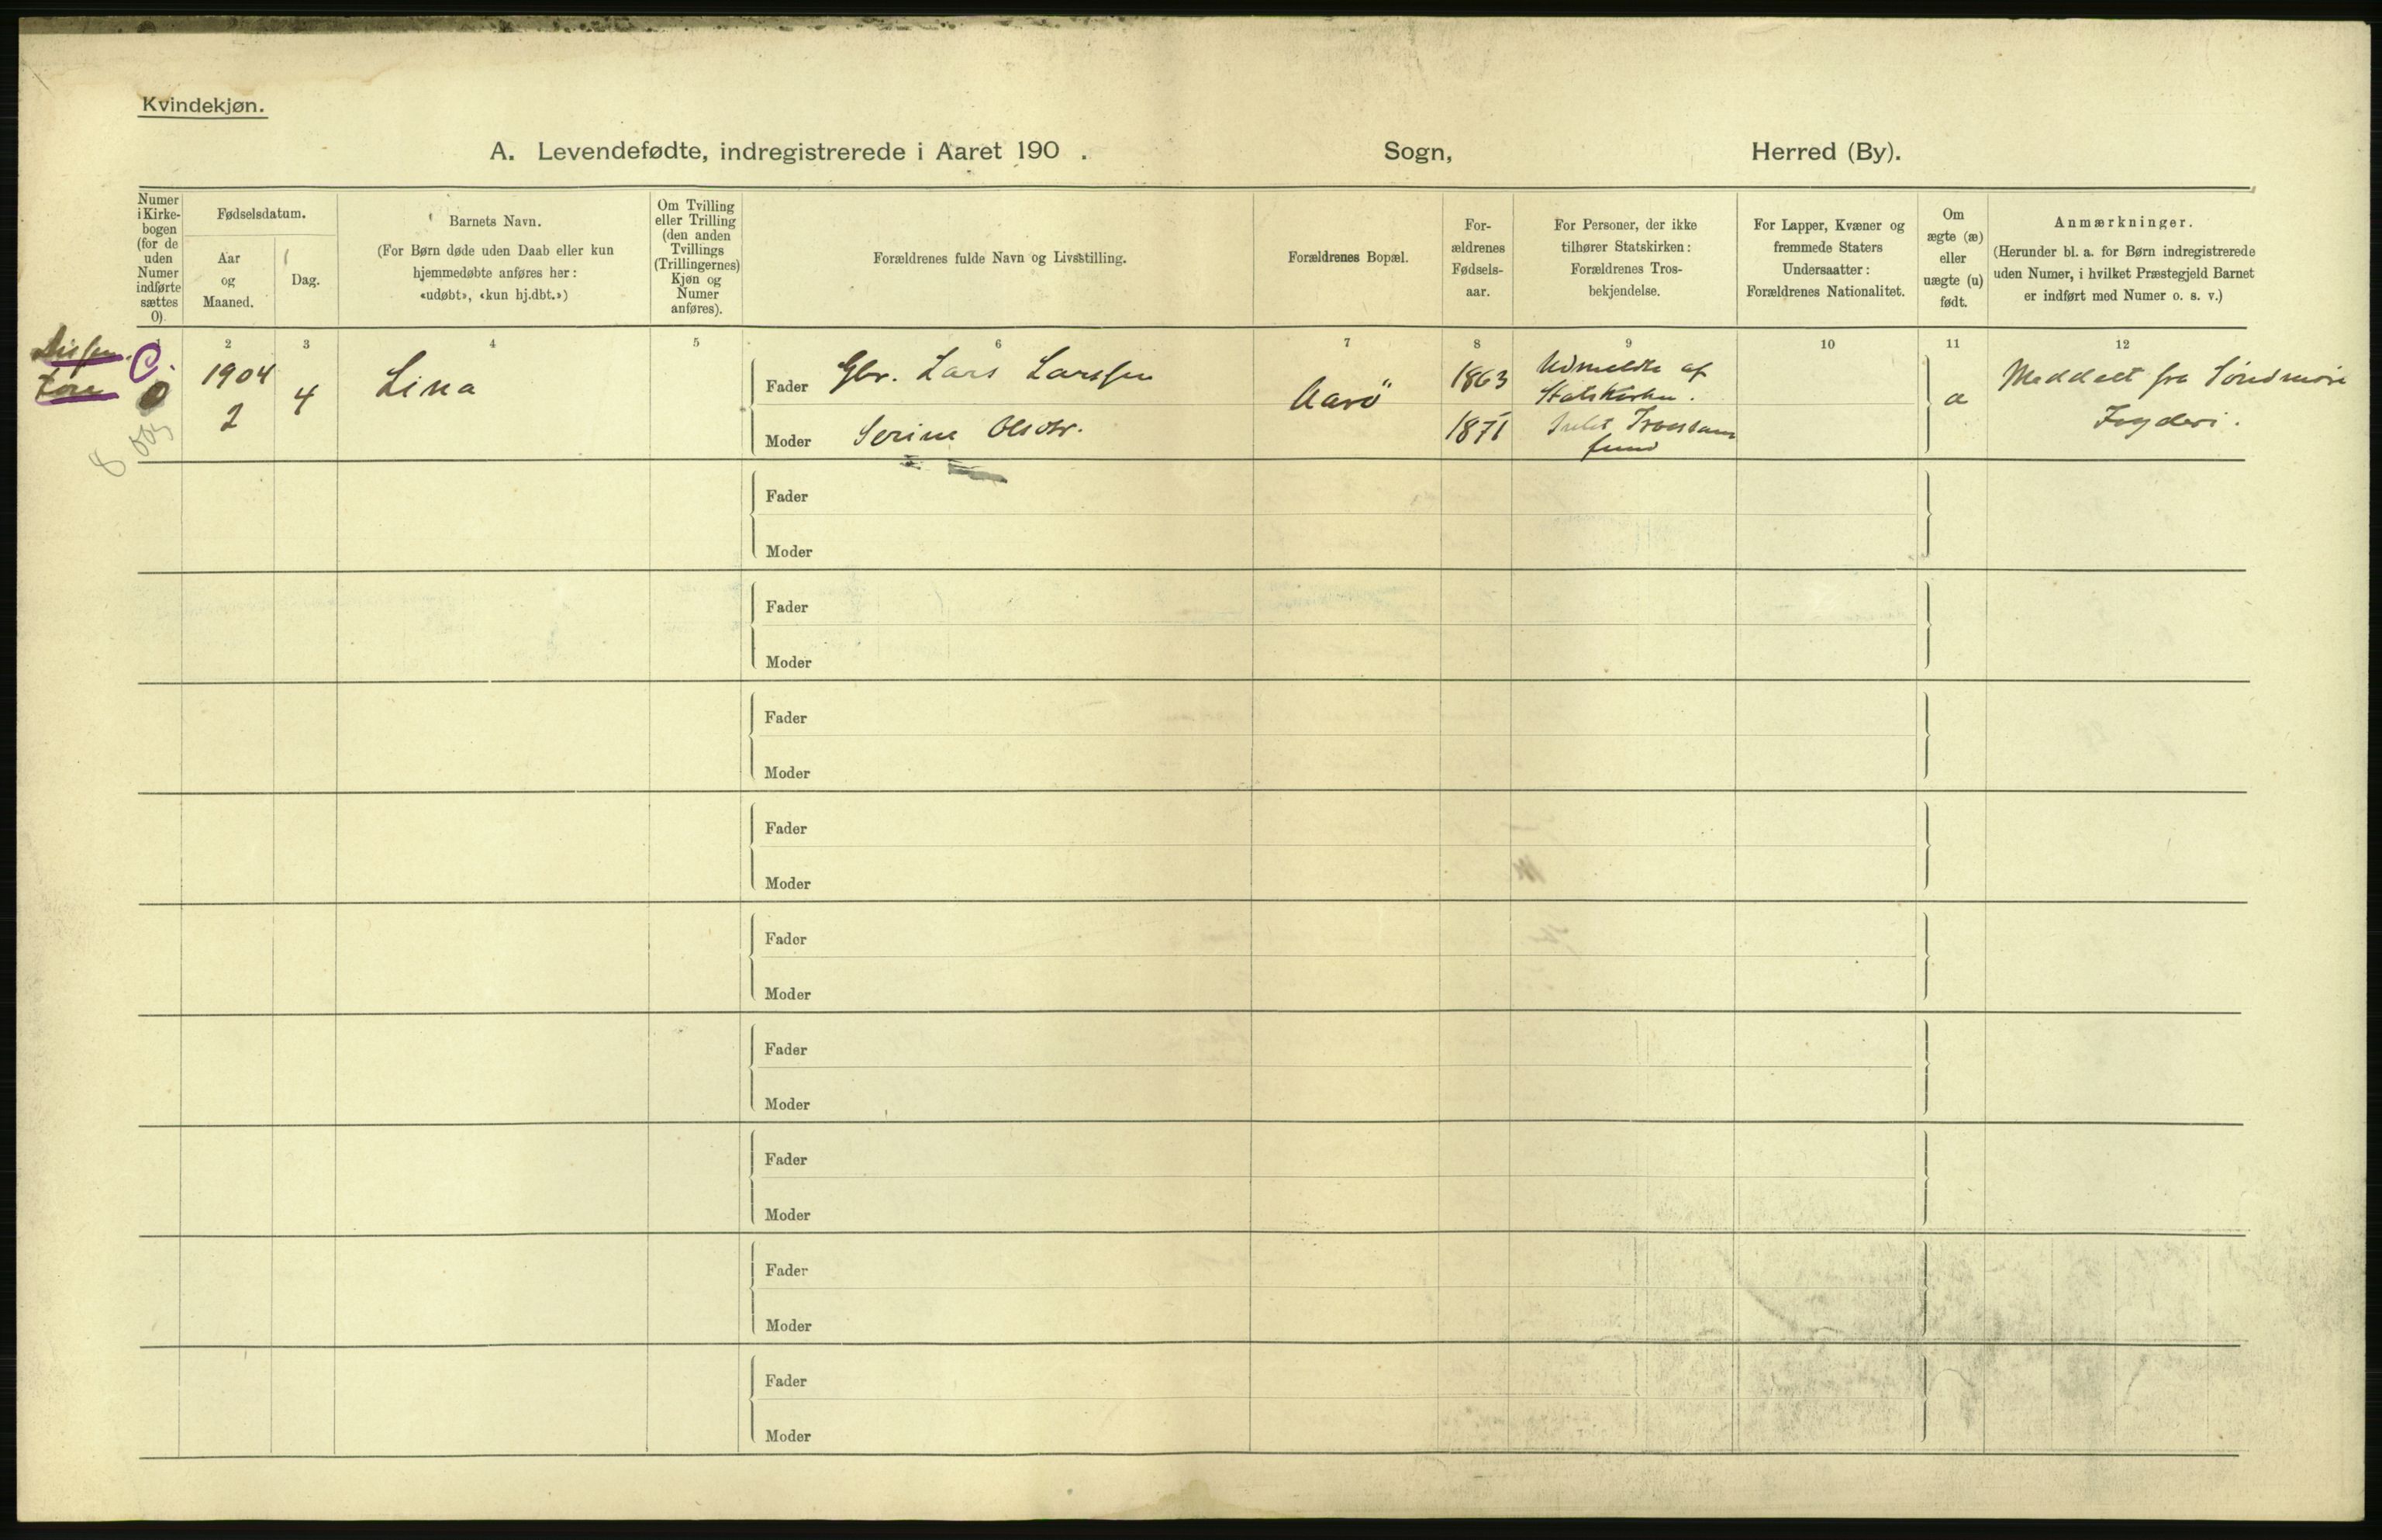 Kvindekjøn.
A. Levendefødte, indregistrerede i Aaret 190 . Sogn, Herred (By).
Numer i Kirkebogen (for de uden Numer indførte sættes 0).
Fødselsdatum.
Aar og Maaned.
Dag.
Barnets Navn.
(For Børn døde uden Daab eller kun
hjemmedøbte anføres her:
«udøbt», «kun hj.dbt.»)
Om Tvilling
eller Trilling
(den anden
Tvillings
(Trillingernes)
Kjøn og
Numer
anføres).
Forældrenes fulde Navn og Livsstilling.
Forældrenes Bopæl.
For-
ældrenes
Fødsels-
aar.
For Personer, der ikke
tilhører Statskirken:
Forældrenes Tros-
bekjendelse.
For Lapper, Kvæner og
fremmede Staters
Undersaatter:
Forældrenes Nationalitet.
Om
ægte (æ)
eller
uægte (u)
født.
Anmærkninger.
(Herunder bl. a. for Børn indregistrerede
uden Numer, i hvilket Præstegjeld Barnet
er indført med Numer o. s. v.)
1 2 3 4 5 6 7 8 9 10 11 12
Dissen-
tere
C.
0
1904
2
4
Lina
Fader Gbr. Lars Larssen
Moder Serine Olsdtr.
Aarö
1863
1871
Udmeldte af
Statskirken.
Intet Trossam
fund
Meddelt fra Söndmöre
Fogderi.
8
Fader
Moder
Fader
Moder
Fader
Moder
Fader
Moder
Fader
Moder
Fader
Moder
Fader
Moder
Fader
Moder
Fader
Moder